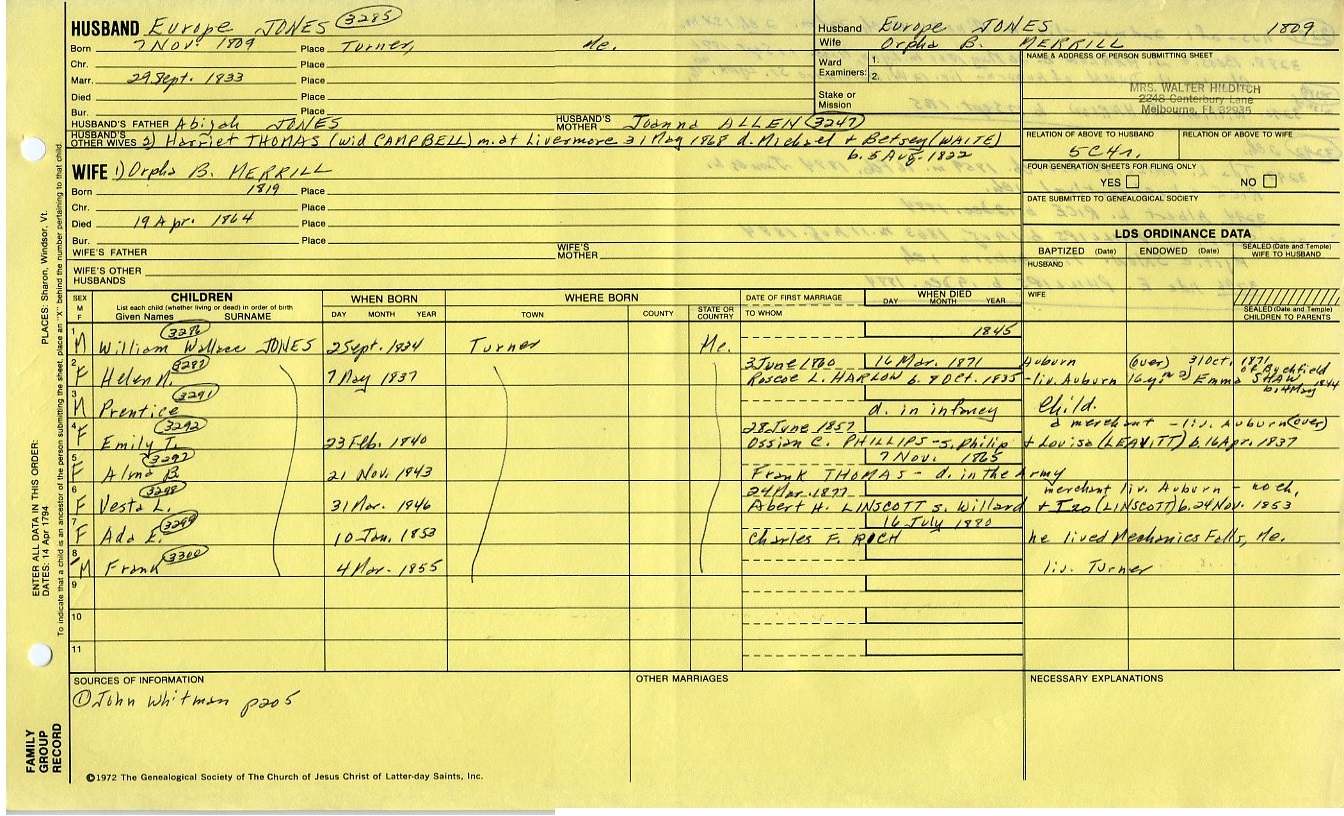 HUSBAND Europe JONES 3285
Born 7 Nov. 1809 Place Turner, Me.
Chr. Place
Marr. 29 Sept. 1833 Place
Died Place
Bur. Place
HUSBAND'S FATHER Abijah JONES HUSBAND'S MOTHER Joanna ALLEN (3247)
HUSBAND'S OTHER WIVES 2) Harriet THOMAS (wid CAMPBELL) m. at Livermore 31 May 1868 d. Michael + Betsey (WAITE)
b. 5 Aug. 1822
WIFE 1) Orpha B. MERRILL
Born 1819 Place
Chr. Place
Died 19 Apr. 1864 Place
Bur. Place
WIFE'S FATHER WIFE'S MOTHER
WIFE'S OTHER HUSBANDS
Husband Europe JONES 1809
Wife Orpha B. MERRILL
Ward Examiners: 1.
2.
Stake or Mission
NAME & ADDRESS OF PERSON SUBMITTING SHEET
MRS. WALTER HILDITCH
2248 Canterbury Lane
Melbourne, FL 32935
RELATION OF ABOVE TO HUSBAND RELATION OF ABOVE TO WIFE
5C4r.
FOUR GENERATION SHEETS FOR FILING ONLY
YES NO
DATE SUBMITTED TO GENEALOGICAL SOCIETY
LDS ORDINANCE DATA
BAPTIZED (Date) ENDOWED (Date) SEALED (Date and Temple) WIFE TO HUSBAND
HUSBAND
WIFE
SEALED (Date and Temple) CHILDREN TO PARENTS
SEX M F CHILDREN WHEN BORN WHERE BORN DATE OF FIRST MARRIAGE WHEN DIED
List each child (whether living or dead) in order of birth
Given Names SURNAME DAY MONTH YEAR TOWN COUNTY STATE OR COUNTRY TO WHOM DAY MONTH YEAR
1 3286 1845
M William Wallace JONES 2 Sept. 1834 Turner Me.
2 3287 3 June 1860 16 Mar. 1871 Auburn (over) 31 Oct. 1871 of Buckfield
F Helen M. 7 May 1837 Roscoe L. HARLOW b. 8 Oct. 1835 - liv. Auburn 16 y. m 2) Emma SHAW b. 4 May 1844
3 3291
M Prentice d. in infancy Child.
4 3292 28 June 1857 a merchant - liv. Auburn (over)
F Emily J. 23 Feb. 1840 Ossian C. PHILLIPS - s. Philip + Louisa (LEAVITT) b. 16 Apr. 1837
5 3297 7 Nov. 1865
F Alma B. 21 Nov. 1843 Frank THOMAS - d. in the Army
6 3298 24 Mar. 1877 merchant liv. Auburn - no ch.
F Vesta L. 31 Mar. 1846 Abert H. LINSCOTT s. Willard + Iza (LINSCOTT) b. 24 Nov. 1853
7 3299 16 July 1880
F Ada E. 10 Jan. 1853 Charles F. RICH he lived Mechanics Falls, Me.
8 3300
M Frank 4 Mar. 1855 liv. Turner
9
10
11
SOURCES OF INFORMATION OTHER MARRIAGES NECESSARY EXPLANATIONS
① John Whitman p205
©1972 The Genealogical Society of The Church of Jesus Christ of Latter-day Saints, Inc.
FAMILY GROUP RECORD
ENTER ALL DATA IN THIS ORDER:
DATES: 14 Apr 1794
PLACES: Sharon, Windsor, Vt.
To indicate that a child is an ancestor of the person submitting the sheet, place an "X" behind the number pertaining to that child.